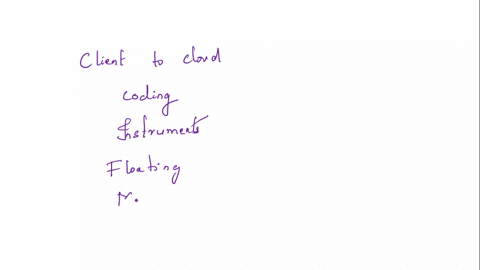 Client to cloud
coding
Instruments
Floating